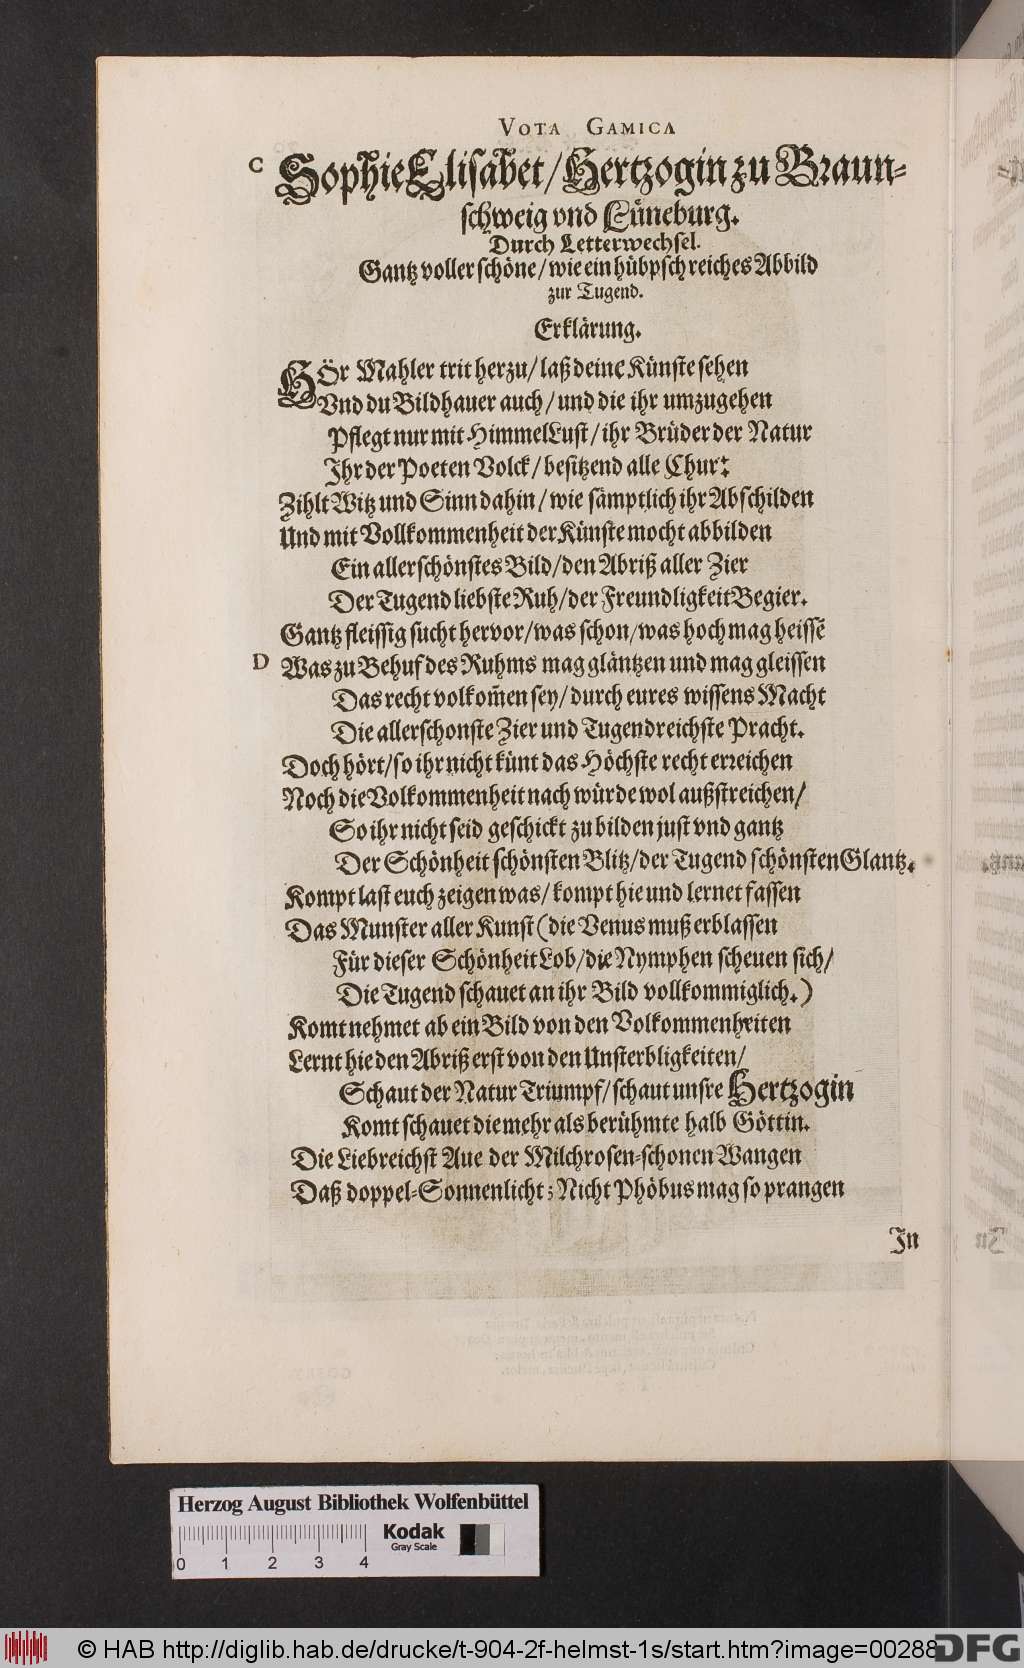 VOTA GAMICA
C Sophie Elisabet / Hertzogin zu Braun-
schweig vnd Lüneburg.
Durch Letterwechsel.
Gantz voller schöne / wie ein hübpsch reiches Abbild
zur Tugend.
Erklärung.
HÖr Mahler trit herzu / laß deine Künste sehen
Vnd du Bildhauer auch / und die ihr umzugehen
Pflegt nur mit HimmelLust / ihr Brüder der Natur
Ihr der Poeten Volck / besitzend alle Chur:
Zihlt Witz und Sinn dahin / wie sämptlich ihr Abschilden
Und mit Vollkommenheit der Künste mocht abbilden
Ein allerschönstes Bild / den Abriß aller Zier
Der Tugend liebste Ruh / der Freundligkeit Begier.
Gantz fleissig sucht hervor / was schon / was hoch mag heissē
D Was zu Behuf des Ruhms mag gläntzen und mag gleissen
Das recht volkom̄en sey / durch eures wissens Macht
Die allerschonste Zier und Tugendreichste Pracht.
Doch hört / so ihr nicht künt das Höchste recht erreichen
Noch die Volkommenheit nach würde wol außstreichen /
So ihr nicht seid geschickt zu bilden just vnd gantz
Der Schönheit schönsten Blitz / der Tugend schönsten Glantz.
Kompt last euch zeigen was / kompt hie und lernet fassen
Das Munster aller Kunst (die Venus muß erblassen
Für dieser Schönheit Lob / die Nymphen scheuen sich /
Die Tugend schauet an ihr Bild vollkommiglich.)
Komt nehmet ab ein Bild von den Volkommenheiten
Lernt hie den Abriß erst von den Unsterbligkeiten /
Schaut der Natur Triumpf / schaut unsre Hertzogin
Komt schauet die mehr als berühmte halb Göttin.
Die Liebreichst Aue der Milchrosen-schonen Wangen
Daß doppel-Sonnenlicht; Nicht Phöbus mag so prangen
In
Herzog August Bibliothek Wolfenbüttel
Kodak
Gray Scale
0 1 2 3 4
© HAB http://diglib.hab.de/drucke/t-904-2f-helmst-1s/start.htm?image=00288
DFG